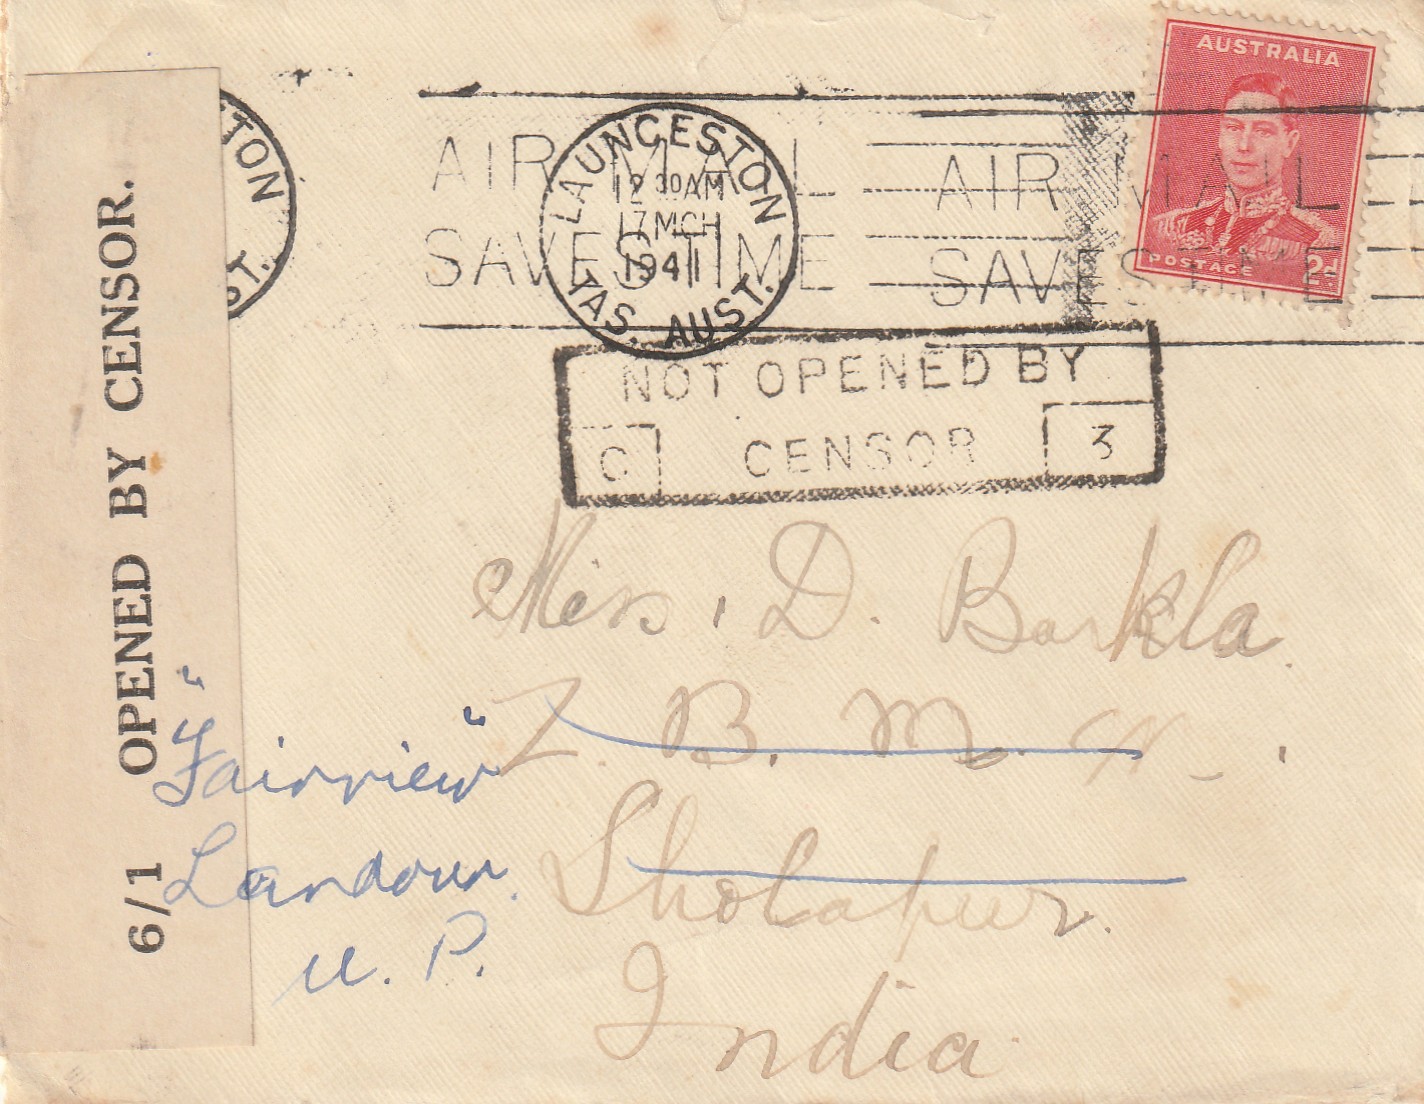 AUSTRALIA
POSTAGE 2d
TON
ST.
AIR MAIL
SAVES TIME
LAUNCESTON
12 30 AM
17 MCH
1941
TAS. AUST.
AIR MAIL
SAVES TIME
NOT OPENED BY
C CENSOR 3
6/1 OPENED BY CENSOR.
Miss. D. Barkla.
Z. B. M. M.
Sholapur.
India
"Fairview"
Landour.
U. P.